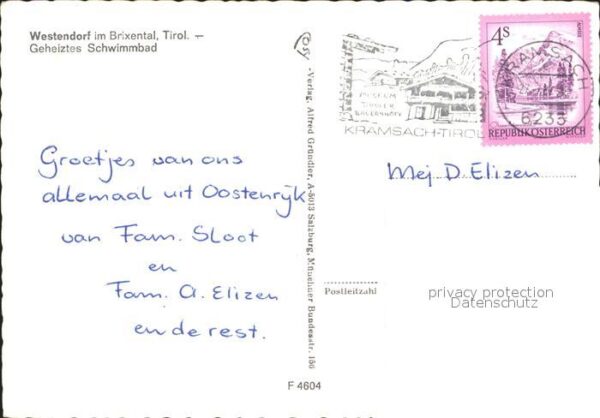 Westendorf im Brixental, Tirol. —
Geheiztes Schwimmbad
Groetjes van ons
allemaal uit Oostenrijk
van Fam. Sloot
en
Fam. A. Elizen
en de rest.
-Verlag. Alfred Gründler, A-5013 Salzburg, Münchner Bundesstr. 156
F 4604
MUSEUM
TIROLER
BAUERNHÖFE
KRAMSACH-TIROL
4S
REPUBLIK ÖSTERREICH
KRAMSACH
6233
Mej D. Elizen
Postleitzahl
privacy protection
Datenschutz